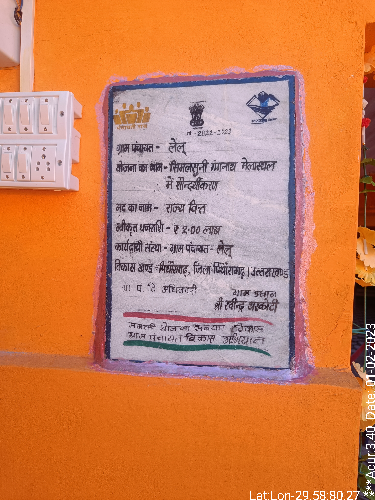 वर्ष - 2022-2023
ग्राम पंचायत - लेलू
योजना का नाम - सिमलसूनी गंगानाथ मेलास्थल
में सौन्दर्यीकरण
मद का नाम - राज्य वित्त
स्वीकृत धनराशि - ₹ 2.00 लाख
कार्यदायी संस्था - ग्राम पंचायत - लेलू
विकास खण्ड - पिथौरागढ़, जिला पिथौरागढ़ । उत्तराखण्ड
ग्रा. पं. वि. अधिकारी ग्राम प्रधान
श्री रवीन्द्र
सबकी योजना सबका विकास
ग्राम पंचायत विकास अभियान
Lat:Lon-29.58:80.27 ***Acur:3.40, Date:01-02-2023